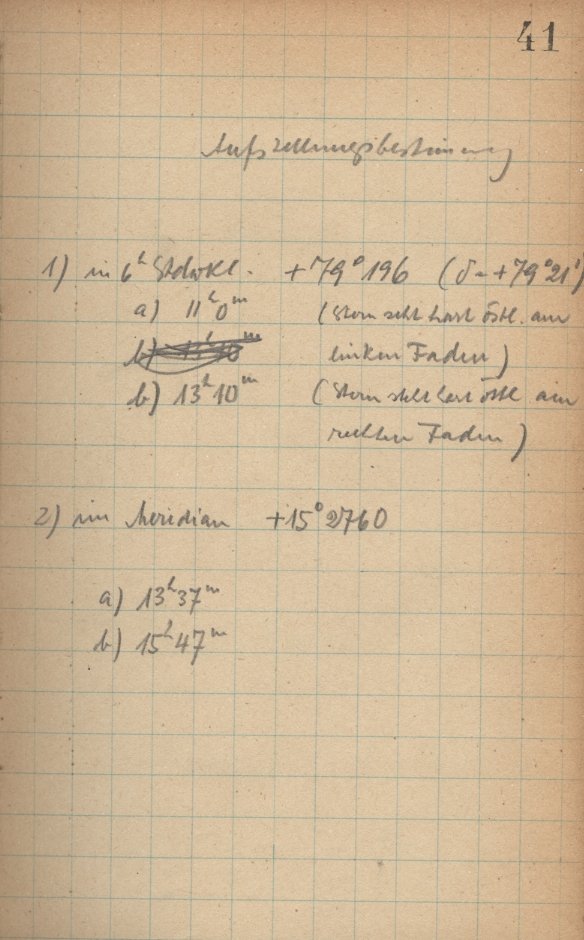 41
Aufstellungsbestimmung
1) im 6ʰ Stdwkl. +79° 196 (δ = +79°21')
a) 11ʰ 0ᵐ (Stern steht hart östl. am
linken Faden)
b) 13ʰ 10ᵐ (Stern steht hart östl am
rechten Faden)
2) im Meridian +15° 2760
a) 13ʰ 37ᵐ
b) 15ʰ 47ᵐ